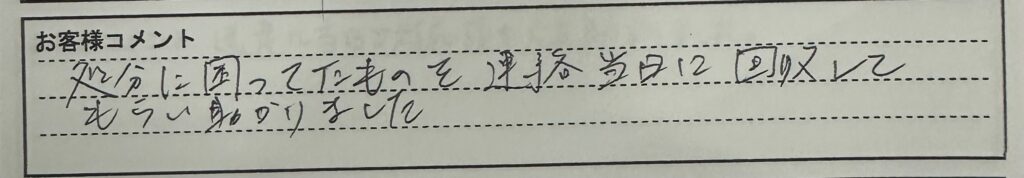 お客様コメント
処分に困ってたものを連絡当日に回収して
もらい助かりました